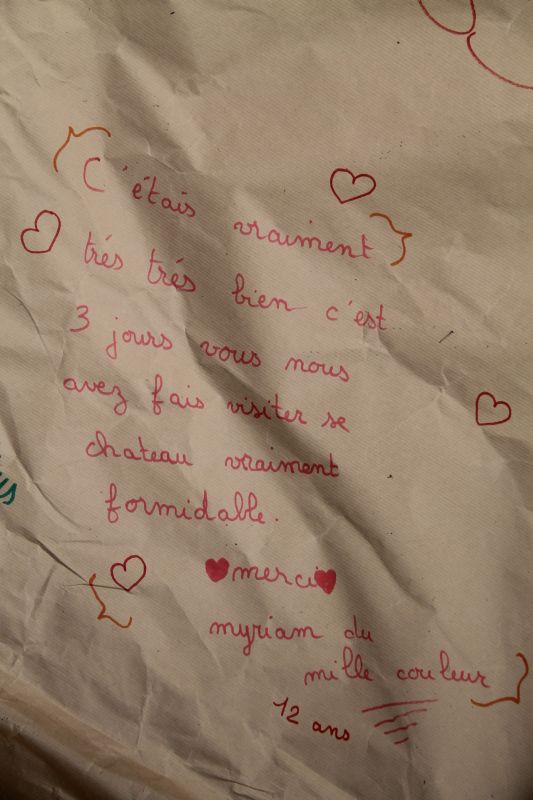 C'étais vraiment
trés trés bien c'est
3 jours vous nous
avez fais visiter se
chateau vraiment
formidable.
merci
myriam du
mille couleur
12 ans